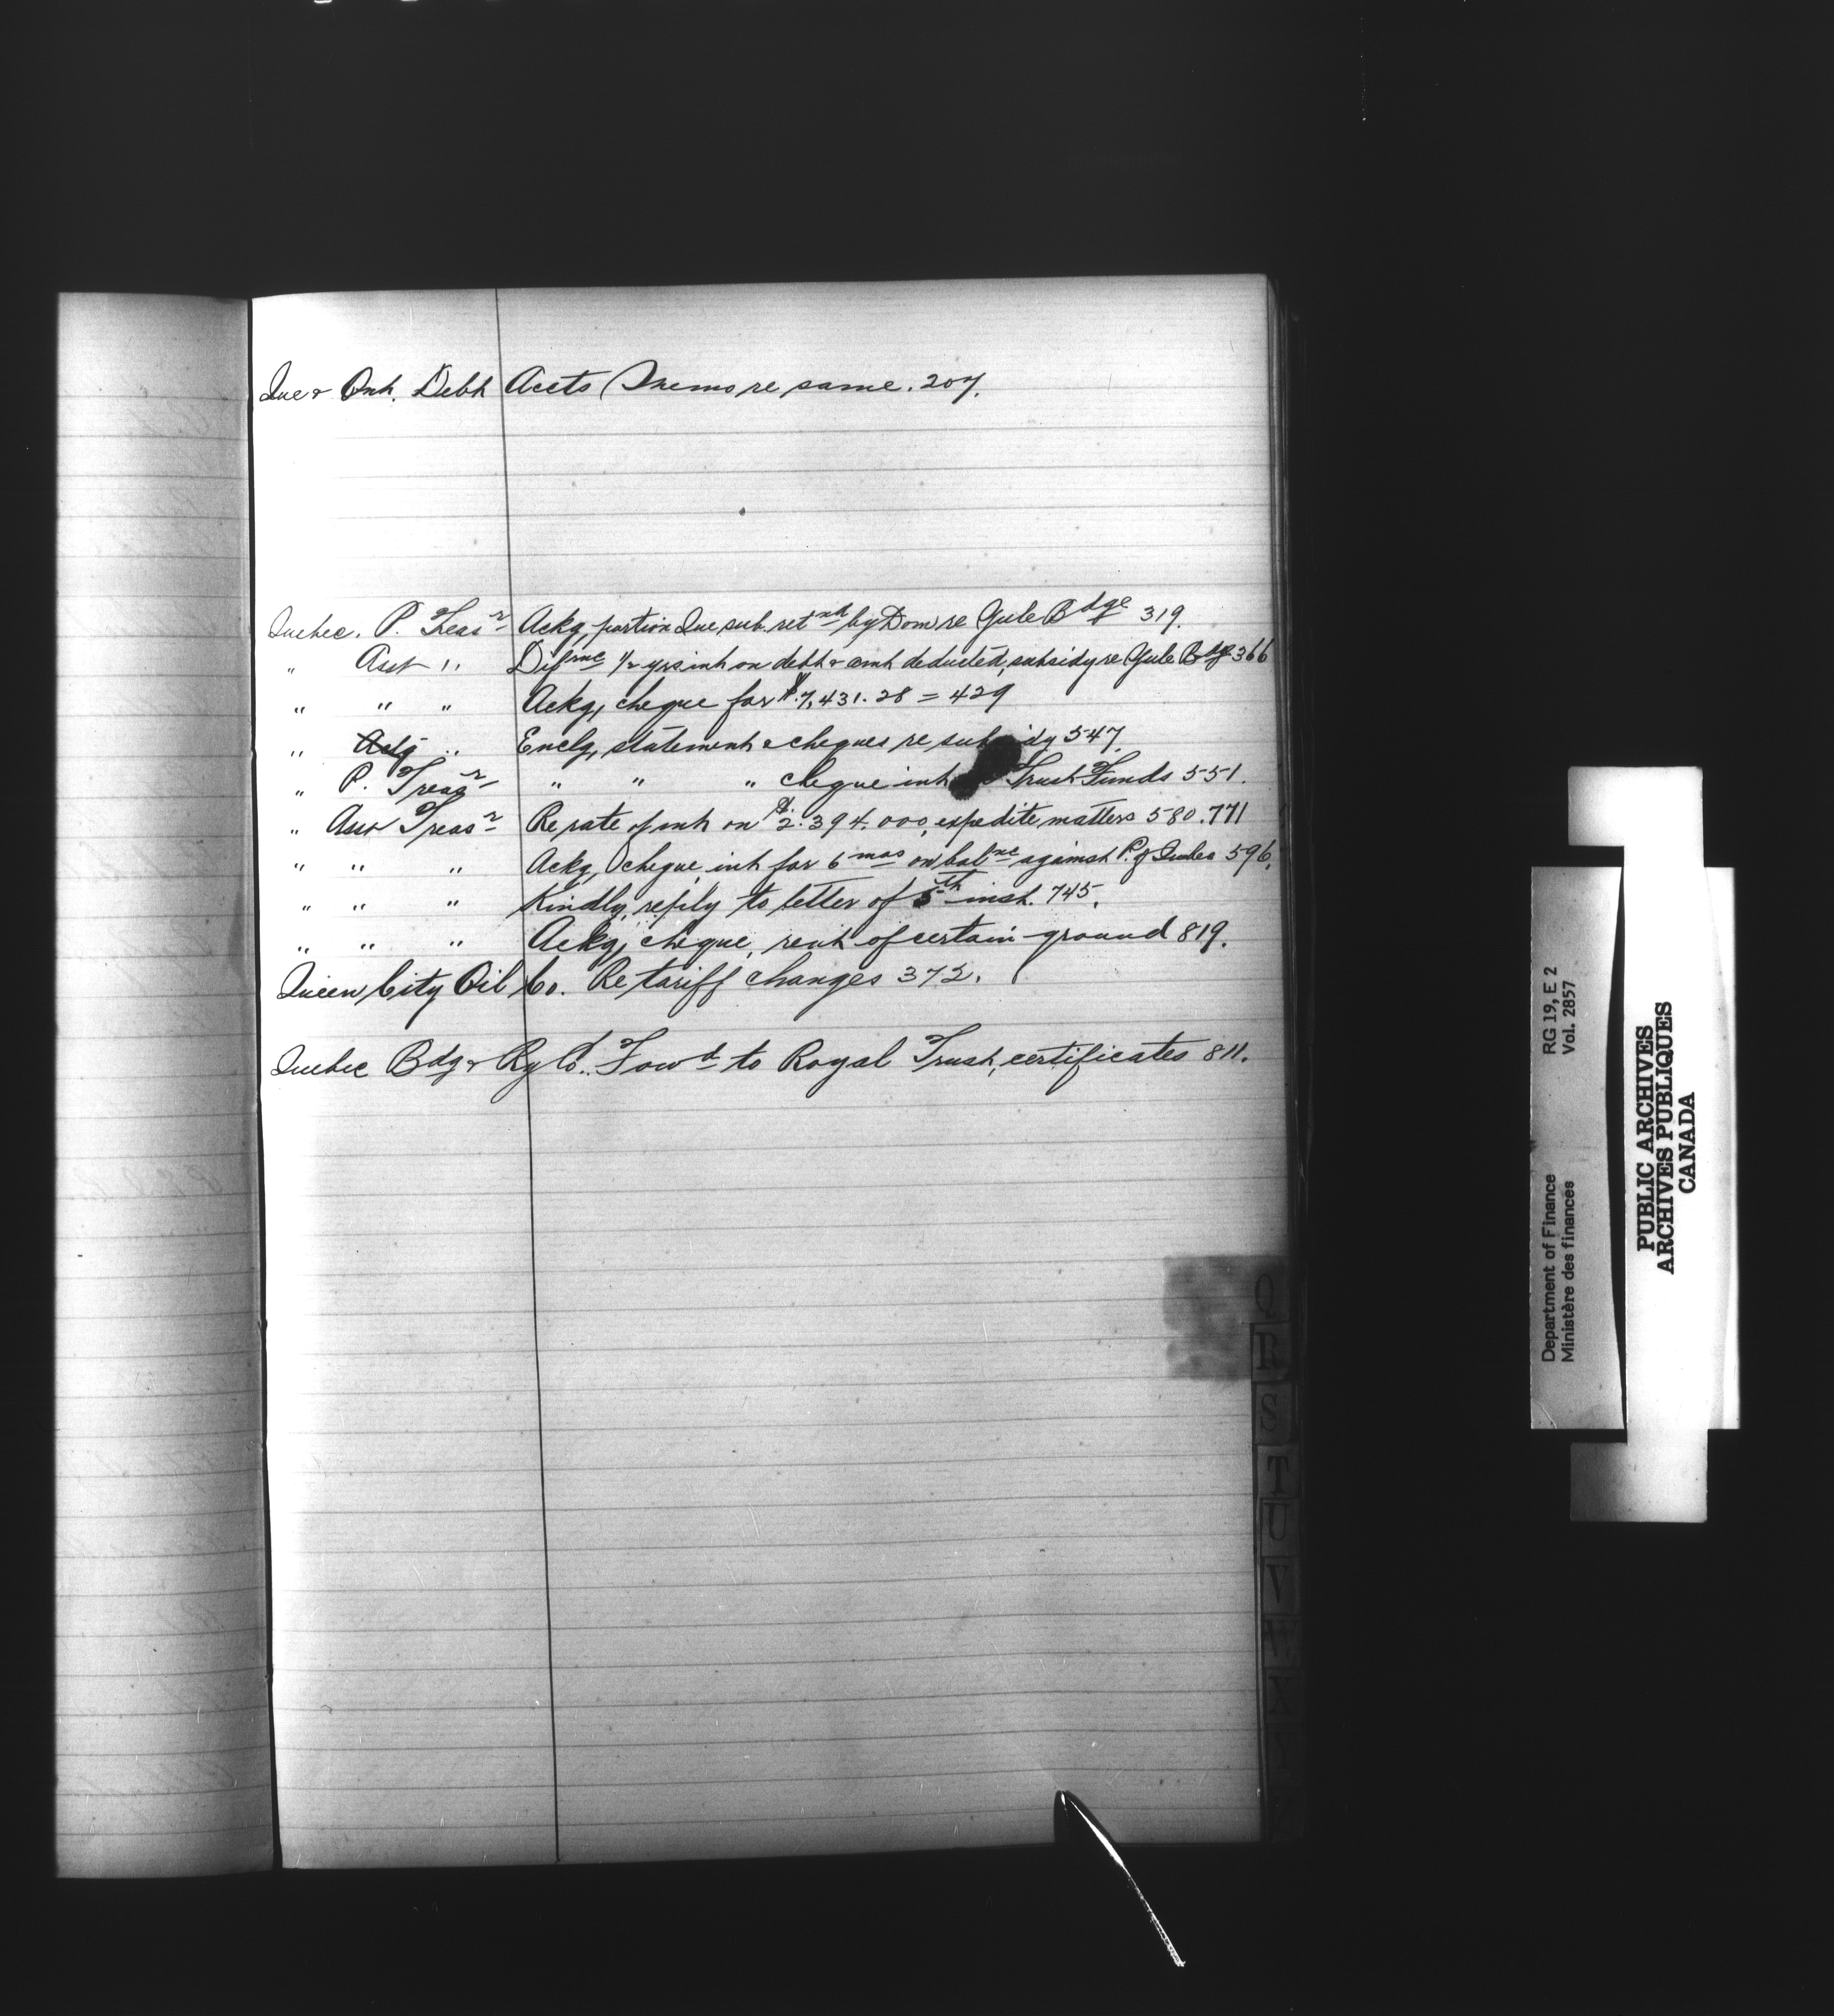 Que & Ont. Debt Accts (Memo re same. 207.
Quebec. P. Treasr Ackg, portion Que sub. retnd by Dom re Yule Bdge 319.
" Asst " Difrnce 1/2 yrs int on debt & amt deducted, subsidy re Yule Bdge 366
" " " Ackg, cheque for $.7,431.28 = 429
" Actg " Enclg, statement & cheques re subsidy 547.
" P. Treasr " " " cheque int Trust Funds 551.
" Asst Treasr Re rate of int on $.2.394.000, expedite matters 580.771
" " " Ackg, cheque, int for 6 mos on balnce against P. of Quebec 596.
" " " Kindly, reply to letter of 5th inst. 745.
" " " Ackg, cheque, rent of certain ground 819.
Queen City Oil Co. Re tariff changes 372.
Quebec Bdg & Ry Co. Fowd to Royal Trust, certificates 811.
Q
R
S
T
U
V
W
X
Department of Finance RG 19, E 2
Ministère des finances Vol. 2857
PUBLIC ARCHIVES
ARCHIVES PUBLIQUES
CANADA